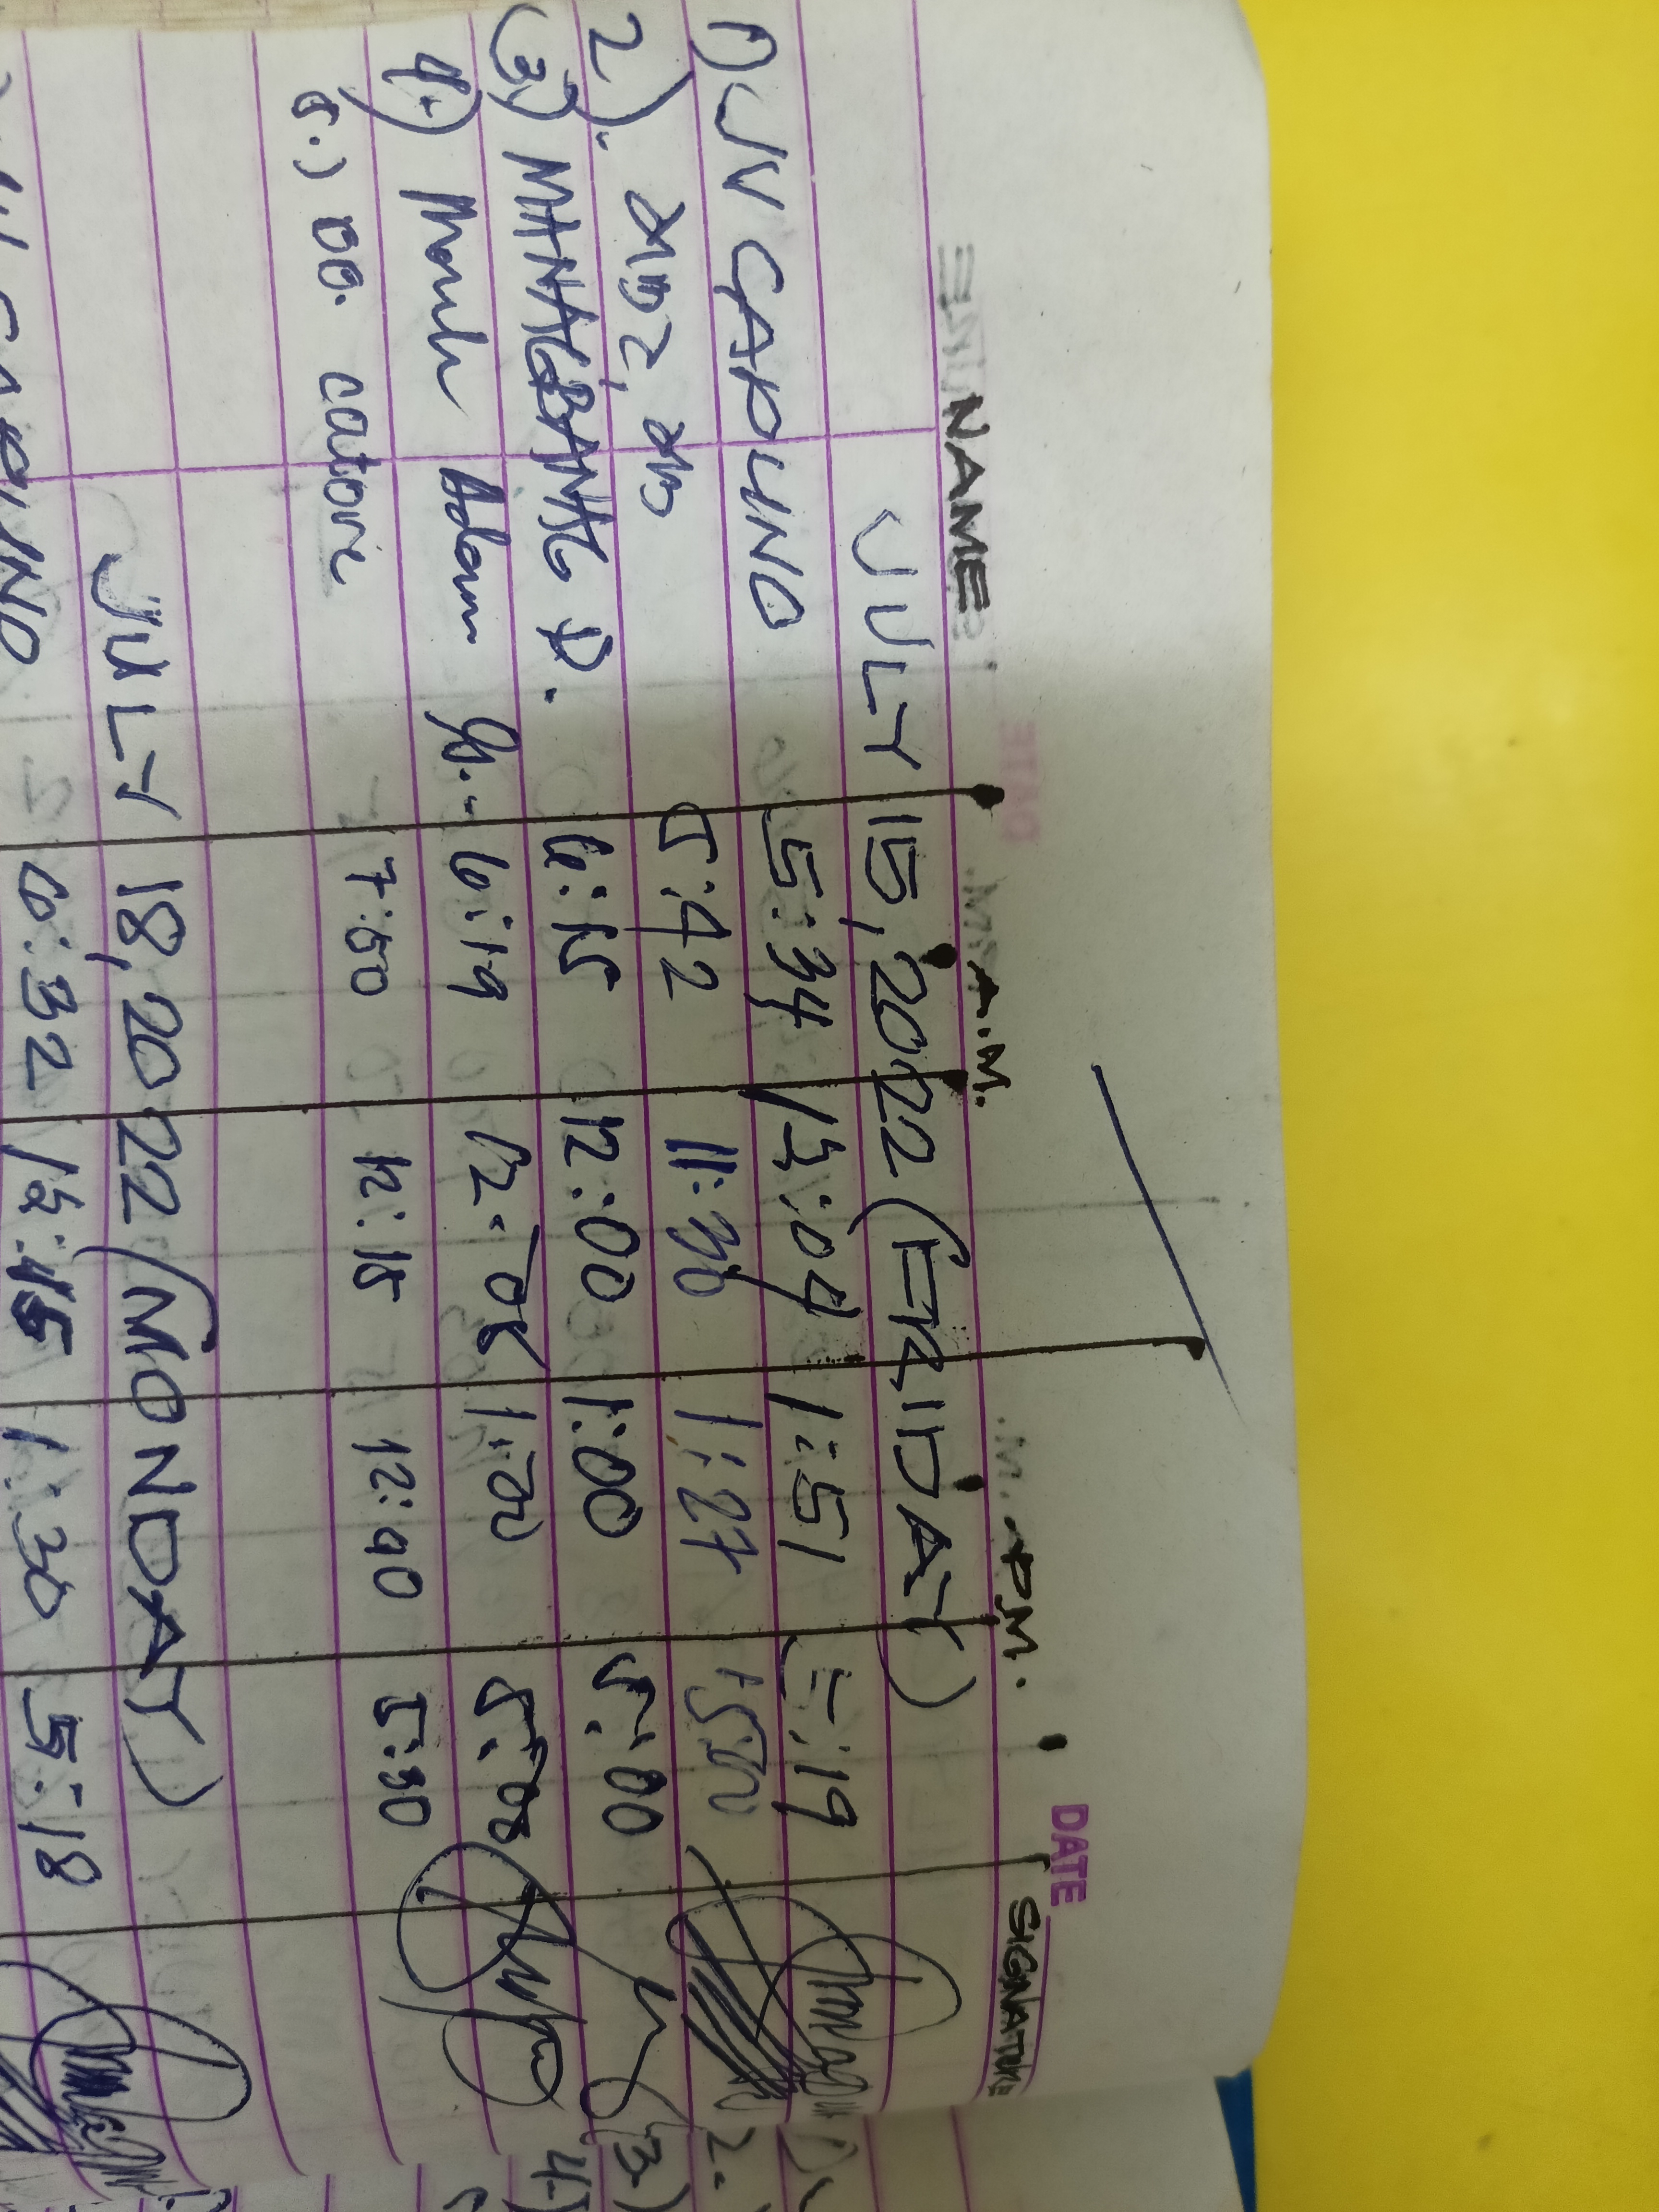 DATE
NAME A.M. P.M. SIGNATURE
JULY 15, 2022 (FRIDAY)
1) JV CAPLINO 5:34 12:04 1:51 5:19
2). 5:42 11:30 1:27 5:00
(3.) MANAGBANAG D. 6:15 12:00 1:00 5:00
4.) Adam Jr. 6:19 12:05 1:00 5:08
5.) OO. catore 7:00 12:15 12:40 5:30
JULY 18, 2022 (MONDAY)
6:32 12:45 1:30 5:18
2.
3.)
4.)